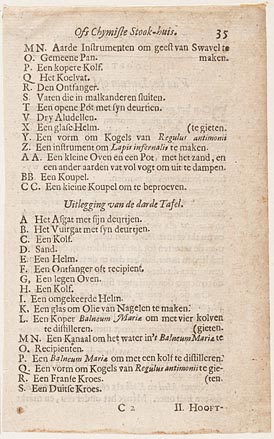 Oft Chymiſte Stook-huis. 35
M N. Aarde Inſtrumenten om geeſt van Swavel te
O. Gemeene Pan. maken.
P. Een kopere Kolf.
Q. Het Koelvat.
R. Den Ontfanger.
S. Vaten die in malkanderen ſluiten.
T. Een opene Pot met ſyn deurtjen.
V. Dry Aludellen.
X. Een glaſe Helm. (te gieten.
Y. Een vorm om Kogels van Regulus antimonii
Z. Een inſtrument om Lapis infernalis te maken.
A A. Een kleine Oven en een Pot, met het zand, en
een ander aarden vat vol vogt om uit te dampen.
BB Een Koupel.
C C. Een kleine Koupel om te beproeven.
Uitlegging van de darde Tafel.
A Het Aſgat met ſijn deurtjen.
B. Het Vuirgat met ſyn deurtjen.
C. Een Kolf.
D. Sand.
E. Een Helm.
F. Een Ontfanger oft recipient.
G, Een legen Oven.
H. Een Kolf.
I. Een omgekeerde Helm.
K. Een glas om Olie van Nagelen te maken.
L. Een Koper Balneum Mariæ om met vier kolven
te diſtilleren. (gieten.
M N. Een Kanaal om het water in't Balneum Mariæ te
O. Recipienten.
P. Een Balneum Mariæ om met een kolf te diſtilleren.
Q. Een vorm om Kogels van Regulus antimonii te gie-
R. Een Franſe Kroes. (ten.
S. Een Duitſe Kroes.
C 2 II. HOOFT-